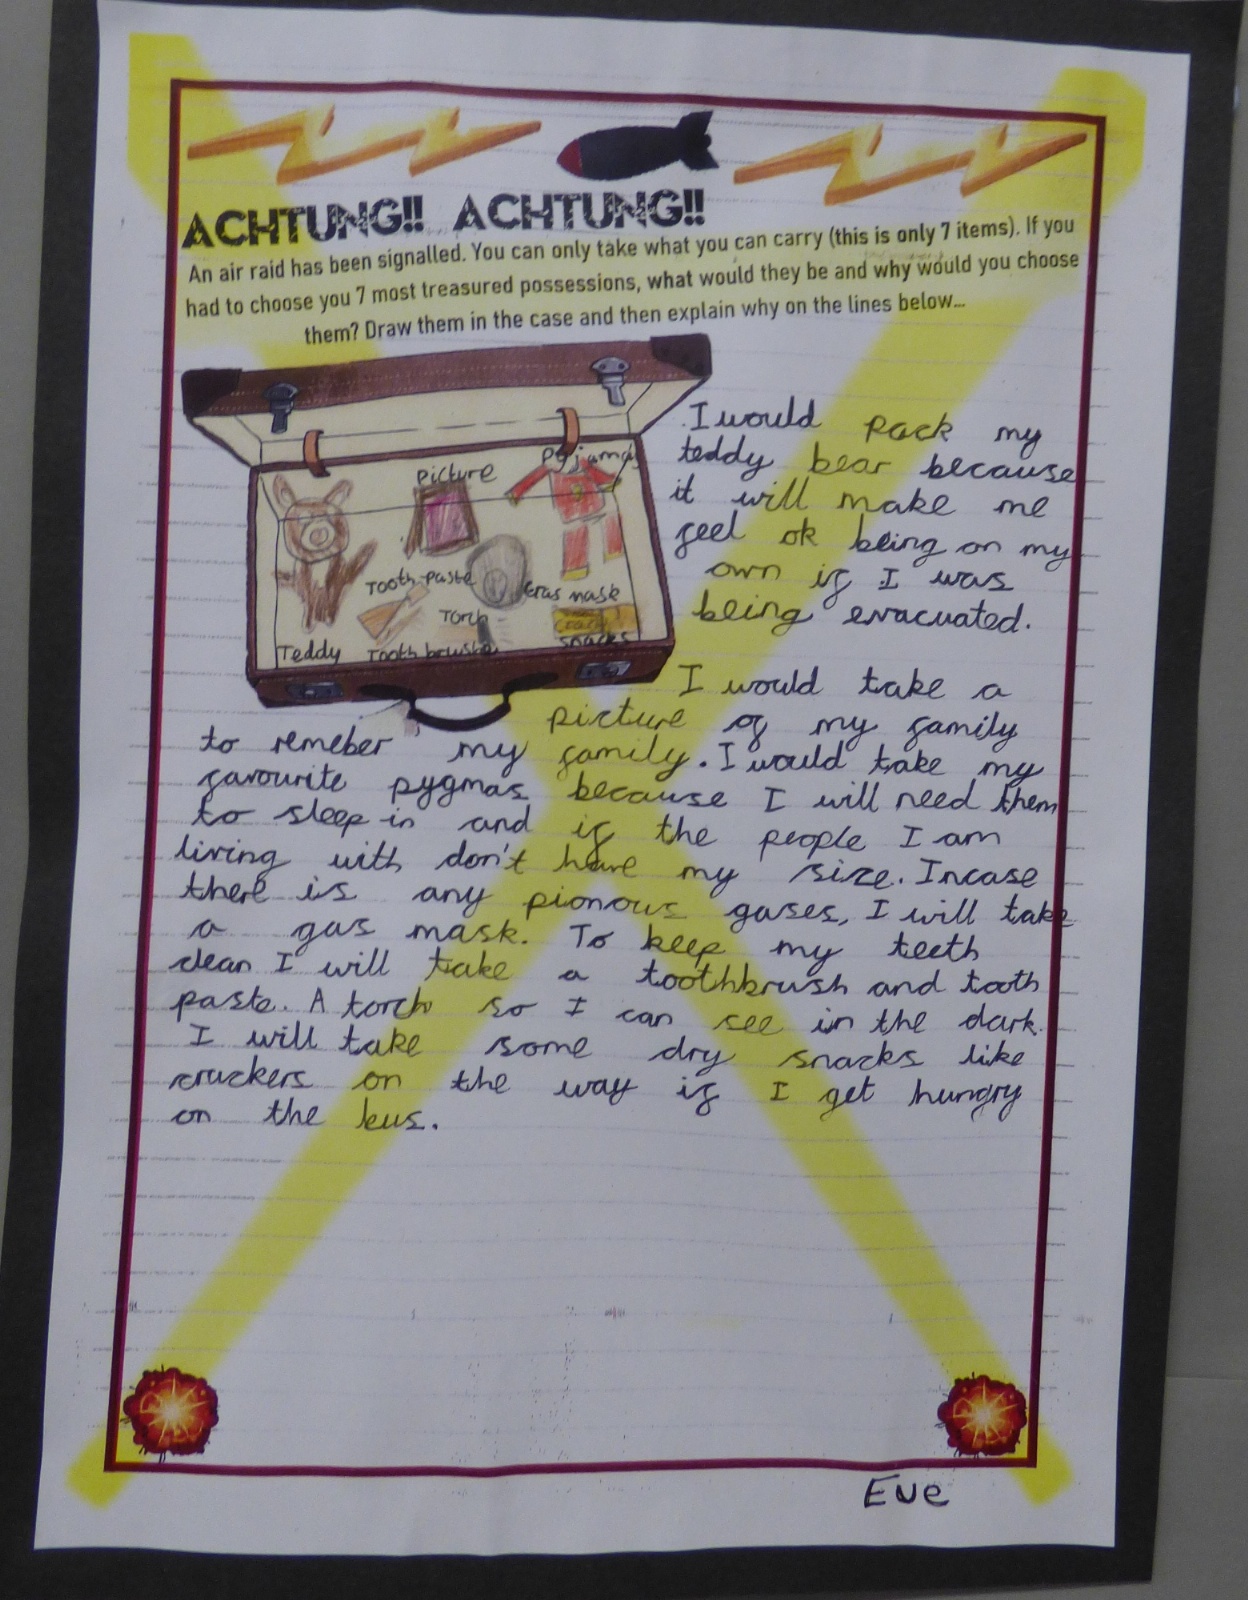 ACHTUNG!! ACHTUNG!!
An air raid has been signalled. You can only take what you can carry (this is only 7 items). If you
had to choose you 7 most treasured possessions, what would they be and why would you choose
them? Draw them in the case and then explain why on the lines below...
picture
pyjamas
Tooth-paste
Gas mask
Torch
Teddy
Tooth brush
snacks
I would pack my
teddy bear because
it will make me
feel ok being on my
own if I was
being evacuated.
I would take a
picture of my family
to remeber my family. I would take my
favourite pygmas because I will need them
to sleep in and if the people I am
living with don't have my size. Incase
there is any pionous gases, I will take
a gas mask. To keep my teeth
clean I will take a toothbrush and tooth
paste. A torch so I can see in the dark.
I will take some dry snacks like
crackers on the way if I get hungry
on the bus.
Eve